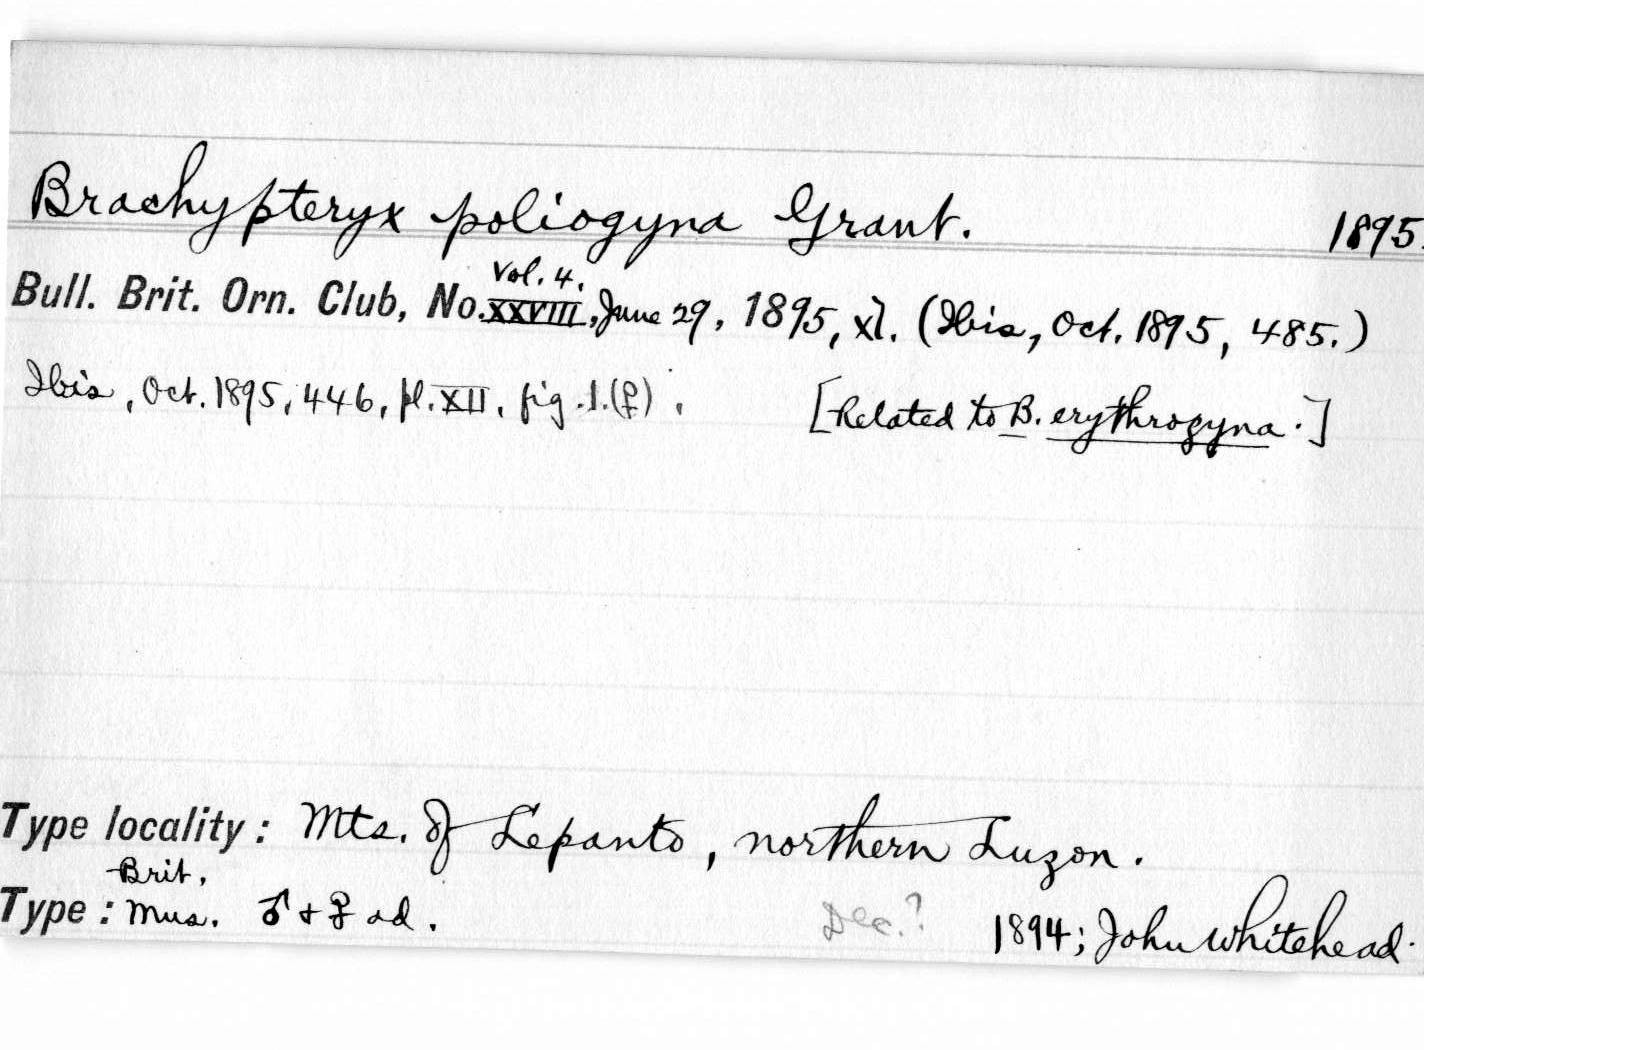 Brachypteryx poliogyna Grant. 1895.
Vol. 4.
Bull. Brit. Orn. Club, No. XXVIII, June 29, 1895, xl. (Ibis, Oct. 1895, 485.)
Ibis, Oct. 1895, 446, pl. XII, fig. 1. (♀). [Related to B. erythrogyna.]
Type locality: Mts. of Lepanto, northern Luzon.
Brit.
Type: Mus. ♂ + ♀ ad. Dec.? 1894; John Whitehead.